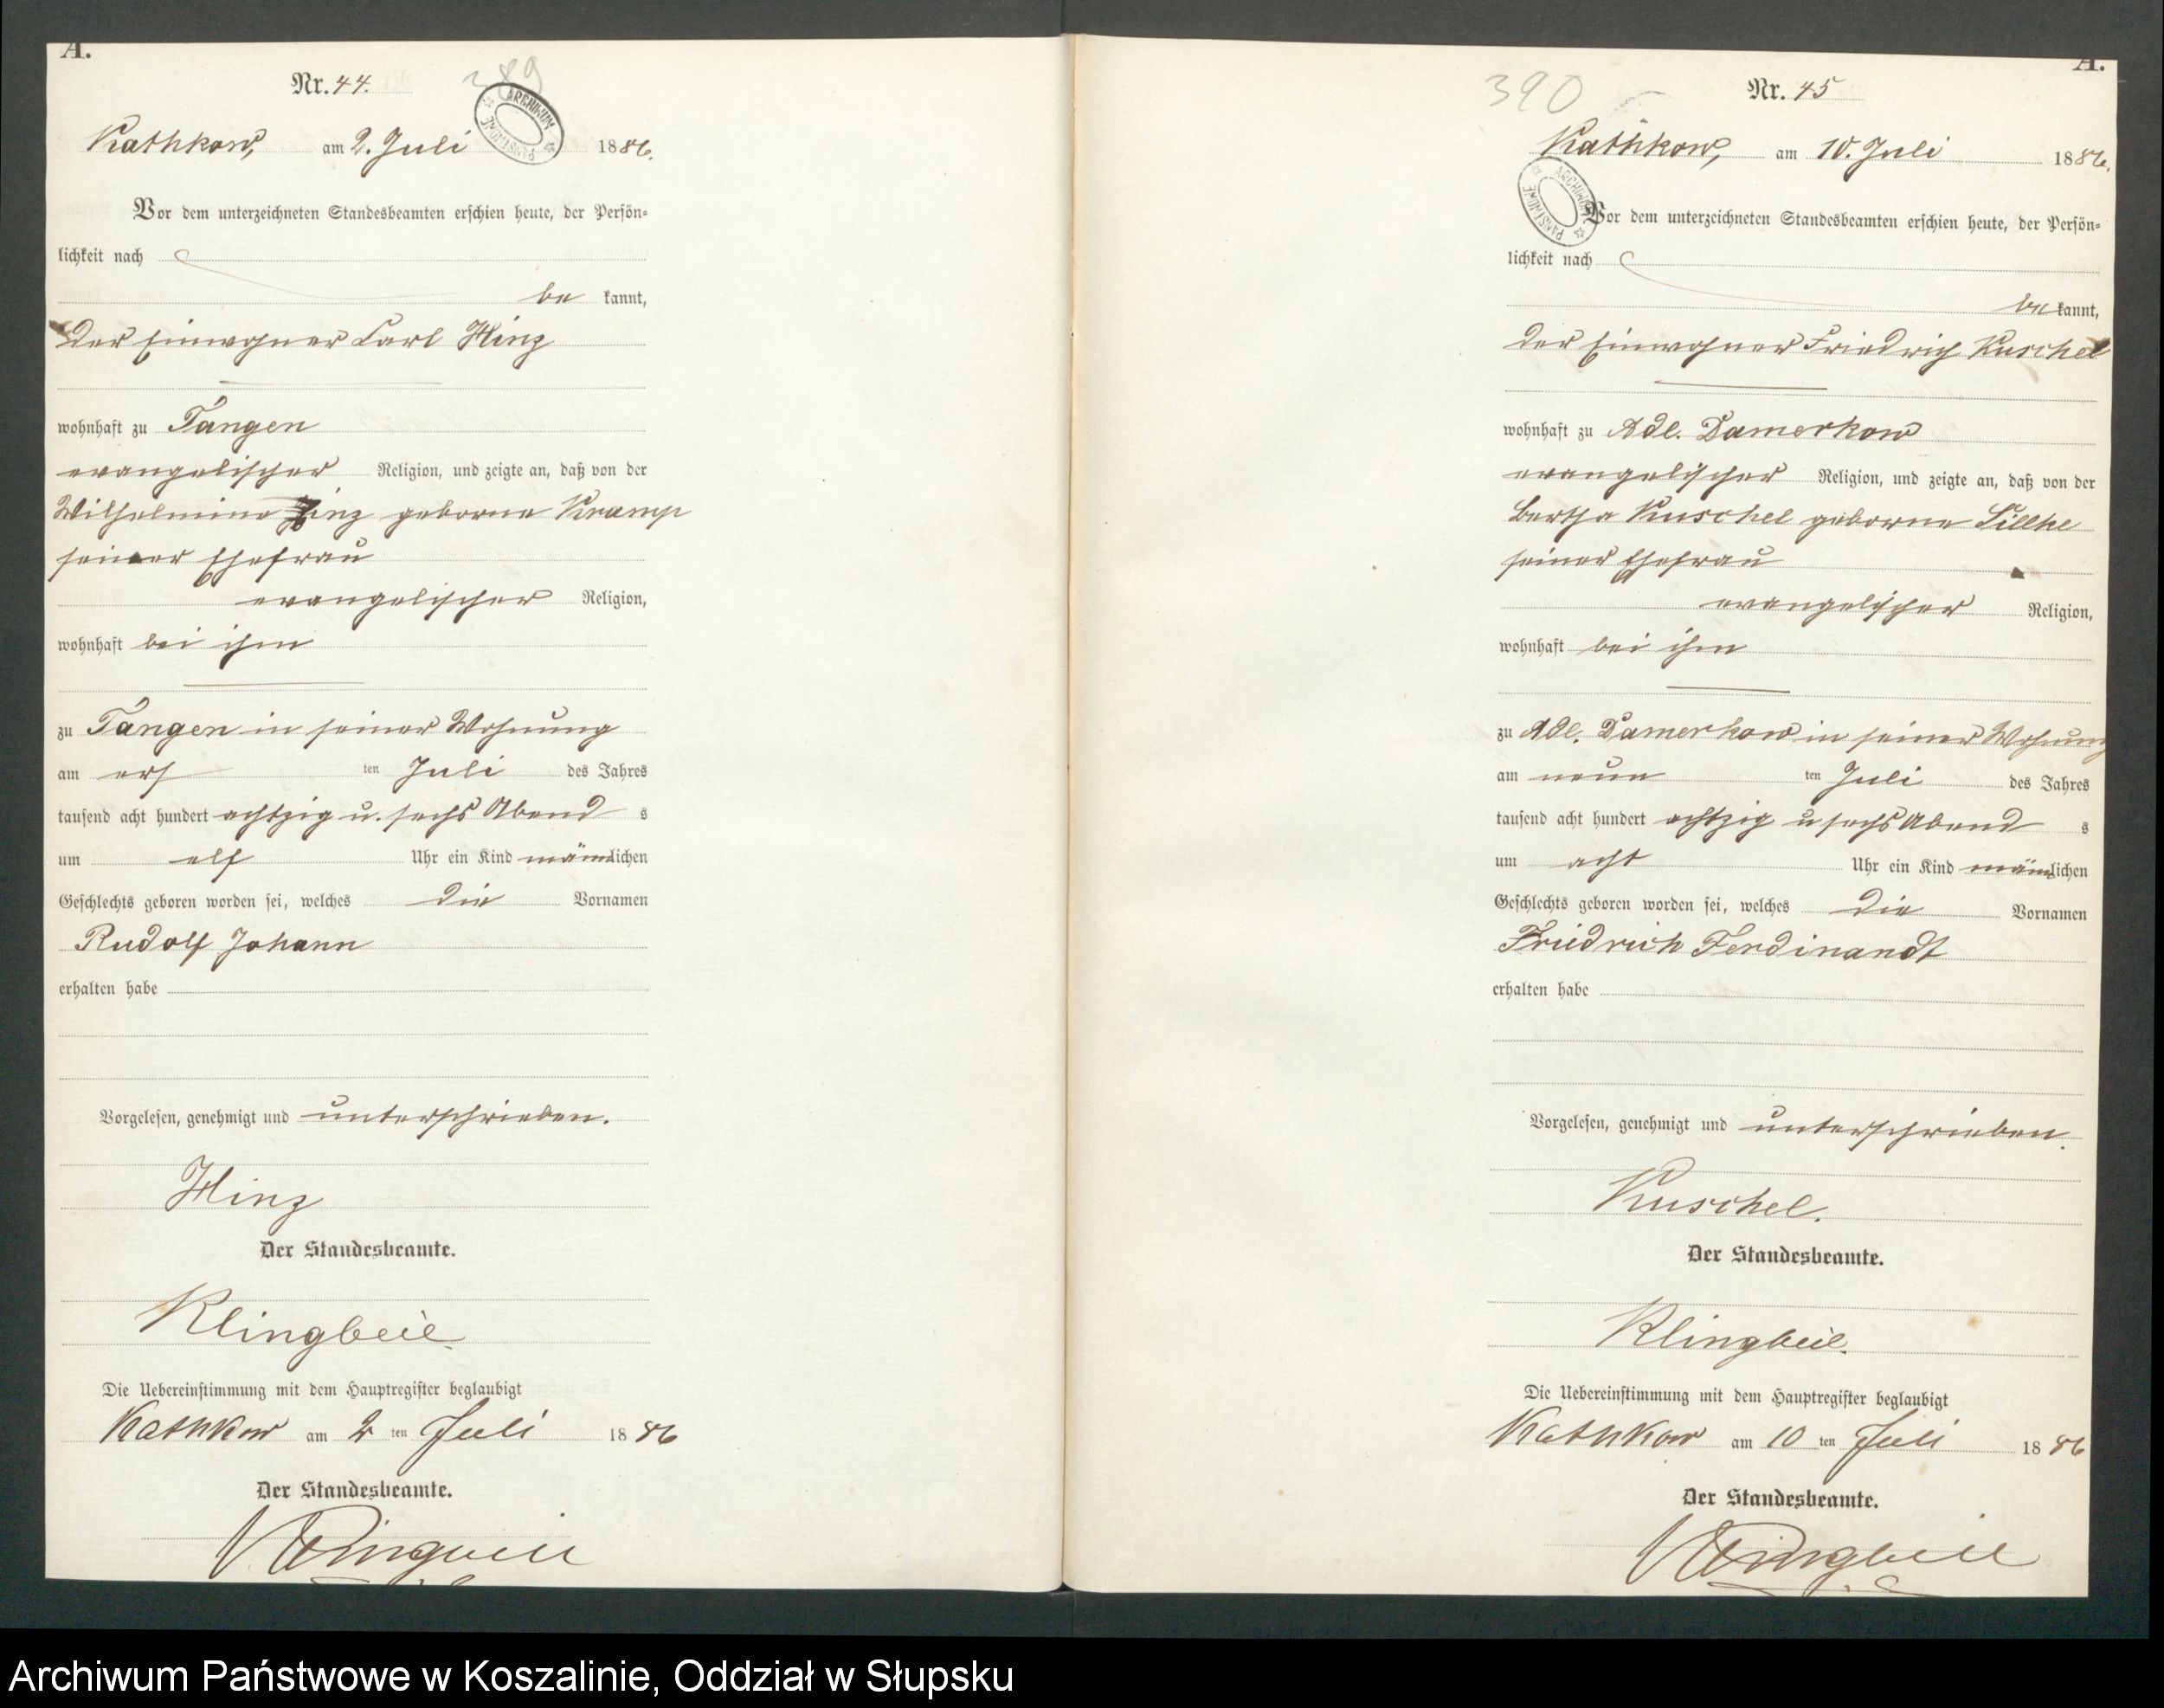 A.
Nr. 44.
389
ARCHIWUM PAŃSTWOWE
Kathkow, am 2. Juli 1886.
Vor dem unterzeichneten Standesbeamten erschien heute, der Persön-
lichkeit nach
be kannt,
der Einwohner Carl Hinz
wohnhaft zu Tangen
evangelischer Religion, und zeigte an, daß von der
Wilhelmine Hinz geborne Kramp
seiner Ehefrau
evangelischer Religion,
wohnhaft bei ihm
zu Tangen in seiner Wohnung
am ers ten Juli des Jahres
tausend acht hundert achtzig u. sechs Abend s
um elf Uhr ein Kind männlichen
Geschlechts geboren worden sei, welches die Vornamen
Rudolf Johann
erhalten habe
Vorgelesen, genehmigt und unterschrieben.
Hinz
Der Standesbeamte.
Klingbeil
Die Uebereinstimmung mit dem Hauptregister beglaubigt
Kathkow am 2 ten Juli 1886
Der Standesbeamte.
Klingbeil
A.
390
Nr. 45
Kathkow, am 10. Juli 1886.
ARCHIWUM PAŃSTWOWE
Vor dem unterzeichneten Standesbeamten erschien heute, der Persön-
lichkeit nach
be kannt,
der Einwohner Friedrich Kuschel
wohnhaft zu Adl. Damerkow
evangelischer Religion, und zeigte an, daß von der
Bertha Kuschel geborne Lillke
seiner Ehefrau
evangelischer Religion,
wohnhaft bei ihm
zu Adl. Damerkow in seiner Wohnung
am neun ten Juli des Jahres
tausend acht hundert achtzig u sechs Abend s
um acht Uhr ein Kind männlichen
Geschlechts geboren worden sei, welches die Vornamen
Friedrich Ferdinandt
erhalten habe
Vorgelesen, genehmigt und unterschrieben.
Kuschel.
Der Standesbeamte.
Klingbeil.
Die Uebereinstimmung mit dem Hauptregister beglaubigt
Kathkow am 10 ten Juli 1886
Der Standesbeamte.
Klingbeil
Archiwum Państwowe w Koszalinie, Oddział w Słupsku